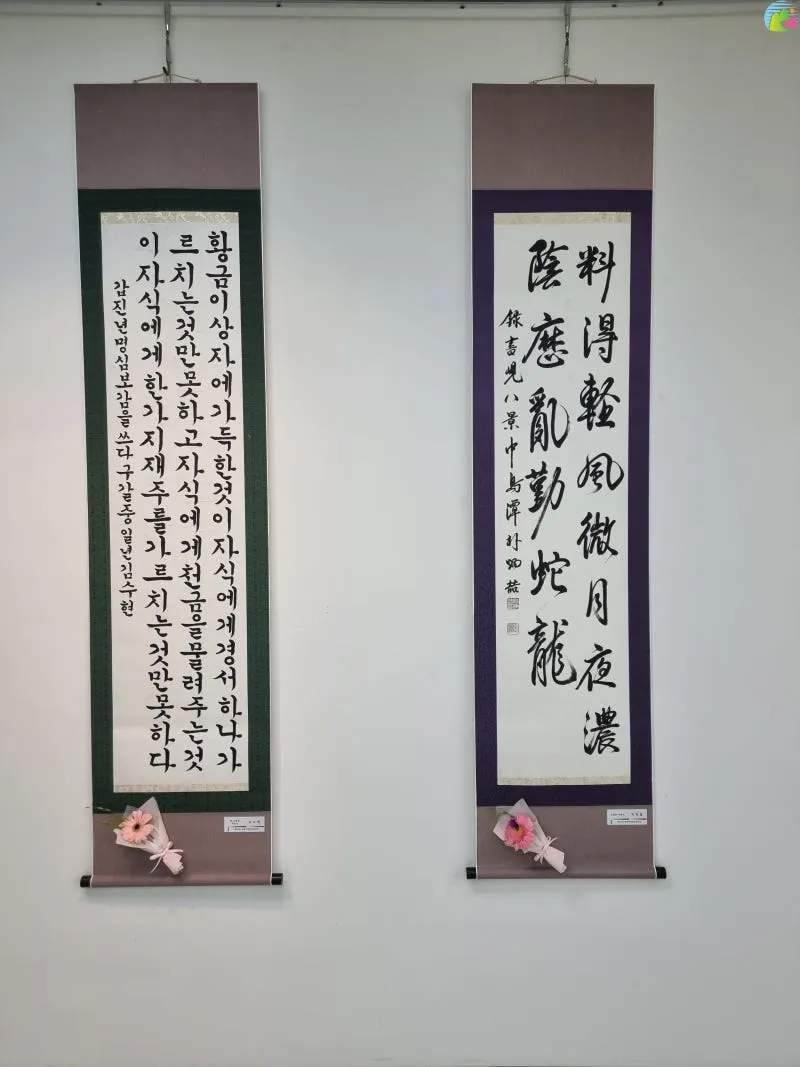 황금이상자에가득한것이자식에게경서하나가
르치는것만못하고자식에게천금을물려주는것
이자식에게한가지재주를가르치는것만못하다
갑진년명심보감을 쓰다 구갈중 일년 김수현
料得軽風微月夜濃
陰歷亂動蛇龍
錄 八景中 潭 朴炳喆